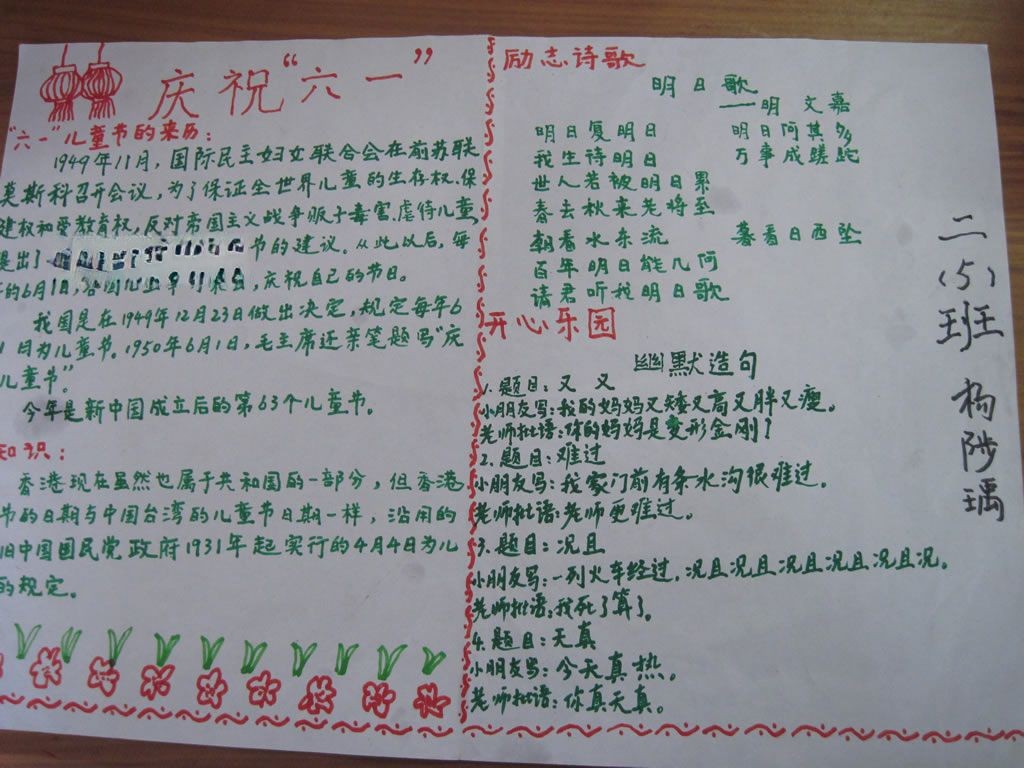 庆祝“六一”
“六一”儿童节的来历：
1949年11月，国际民主妇女联合会在前苏联
莫斯科召开会议，为了保证全世界儿童的生存权.保
健权和受教育权，反对帝国主义战争贩子毒害.虐待儿童，
提出了 节的建议。从此以后，每
的6月1日， 庆祝自己的节日。
我国是在1949年12月23日做出决定，规定每年6
1日为儿童节。1950年6月1日，毛主席还亲笔题写“庆
儿童节”。
今年是新中国成立后的第63个儿童节。
知识：
香港现在虽然也属于共和国的一部分，但香港
节的日期与中国台湾的儿童节日期一样，沿用的
旧中国国民党政府1931年起实行的4月4日为儿
的规定。
励志诗歌
明日歌
——明 文嘉
明日复明日 明日何其多
我生待明日 万事成蹉跎
世人若被明日累
春去秋来老将至
朝看水东流 暮看日西坠
百年明日能几何
请君听我明日歌
开心乐园
幽默造句
1.题目：又 又
小朋友写：我的妈妈又矮又高又胖又瘦。
老师批语：你的妈妈是变形金刚？
2.题目：难过
小朋友写：我家门前有条水沟很难过。
老师批语：老师更难过。
3.题目：况且
小朋友写：一列火车经过，况且况且况且况且况且况。
老师批语：我死了算了。
4.题目：天真
小朋友写：今天真热。
老师批语：你真天真。
二（5）班 杨陟瑀